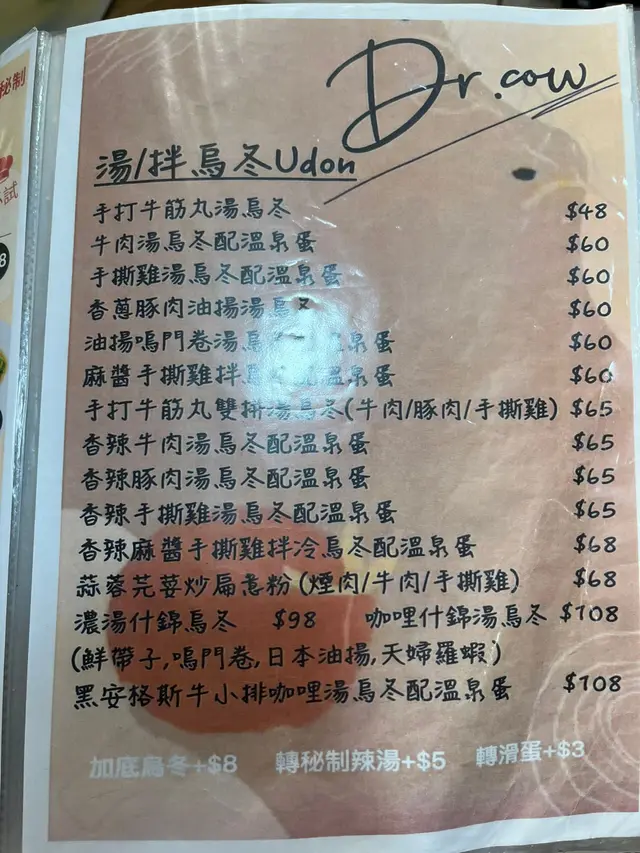 Dr.cow
湯/拌烏冬Udon
手打牛筋丸湯烏冬 $48
牛肉湯烏冬配溫泉蛋 $60
手撕雞湯烏冬配溫泉蛋 $60
香蔥豚肉油揚湯烏冬 $60
油揚鳴門卷湯烏 溫泉蛋 $60
麻醬手撕雞拌 溫泉蛋 $60
手打牛筋丸雙拼湯烏冬(牛肉/豚肉/手撕雞) $65
香辣牛肉湯烏冬配溫泉蛋 $65
香辣豚肉湯烏冬配溫泉蛋 $65
香辣手撕雞湯烏冬配溫泉蛋 $65
香辣麻醬手撕雞拌冷烏冬配溫泉蛋 $68
蒜蓉芫荽炒扁意粉(煙肉/牛肉/手撕雞) $68
濃湯什錦烏冬 $98 咖哩什錦湯烏冬 $108
(鮮帶子,鳴門卷,日本油揚,天婦羅蝦)
黑安格斯牛小排咖哩湯烏冬配溫泉蛋 $108
加底烏冬+$8 轉秘制辣湯+$5 轉滑蛋+$3
秘制
試
8